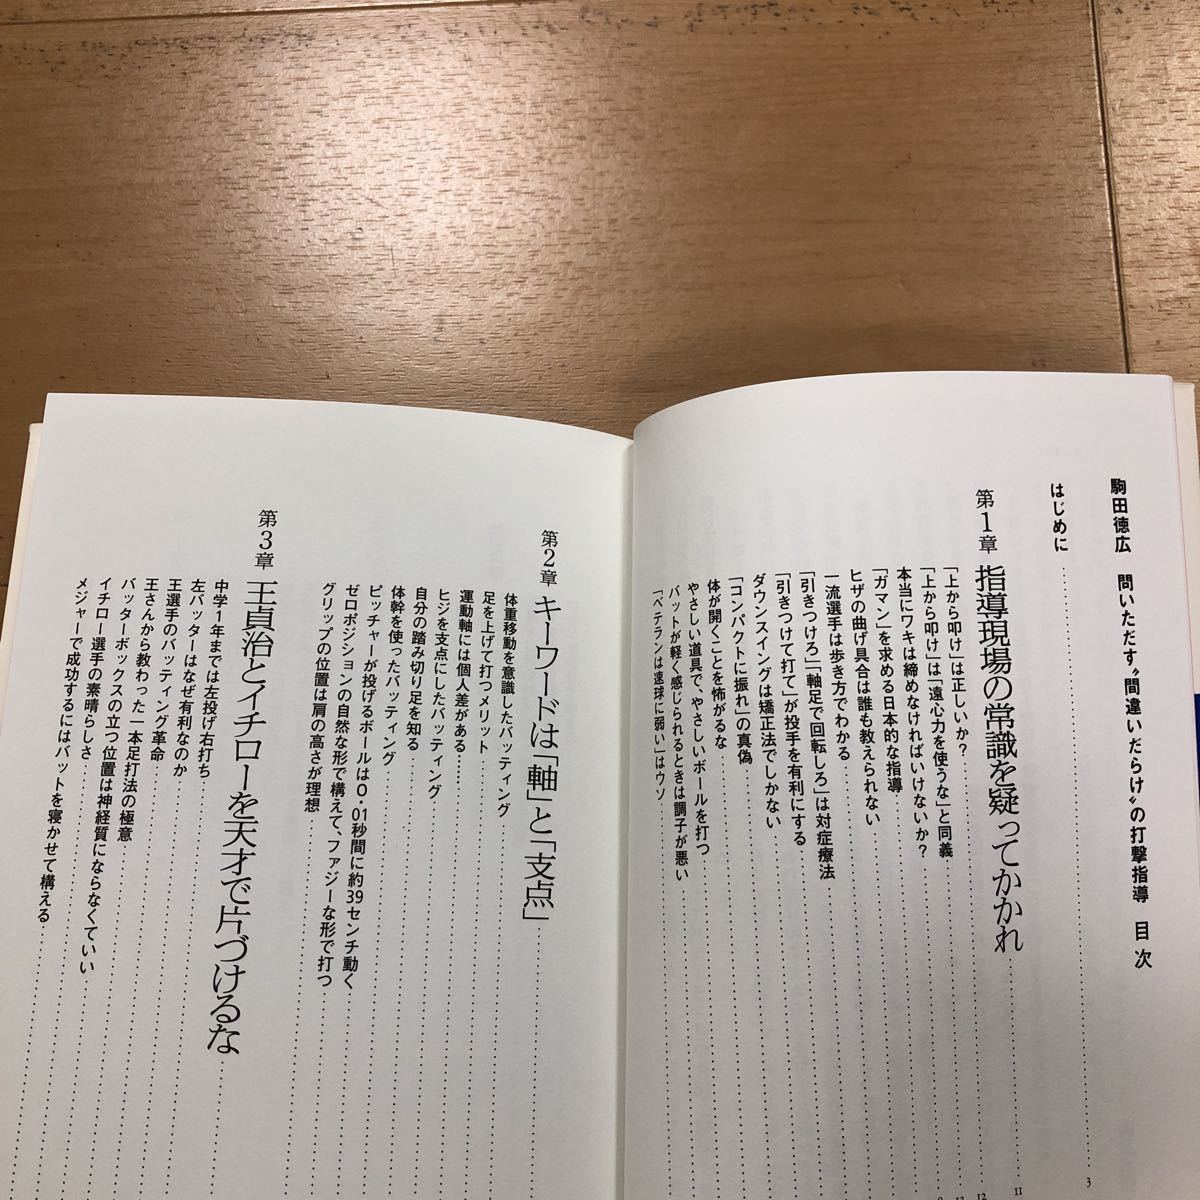 駒田徳広 問いただす〝間違いだらけ〟の打撃指導 目次
はじめに 3
第1章 指導現場の常識を疑ってかかれ 11
「上から叩け」は正しいか？ 12
「上から叩け」は「遠心力を使うな」と同義
本当にワキは締めなければいけないか？
「ガマン」を求める日本的な指導
ヒザの曲げ具合は誰も教えられない
一流選手は歩き方でわかる
「引きつけろ」「軸足で回転しろ」は対症療法
「引きつけて打て」が投手を有利にする
ダウンスイングは矯正法でしかない
「コンパクトに振れ」の真偽
体が開くことを怖がるな
やさしい道具で、やさしいボールを打つ
バットが軽く感じられるときは調子が悪い
「ベテランは速球に弱い」はウソ
第2章 キーワードは「軸」と「支点」
体重移動を意識したバッティング
足を上げて打つメリット
運動軸には個人差がある
ヒジを支点にしたバッティング
自分の踏み切り足を知る
体幹を使ったバッティング
ピッチャーが投げるボールは0・01秒間に約39センチ動く
ゼロポジションの自然な形で構えて、ファジーな形で打つ
グリップの位置は肩の高さが理想
第3章 王貞治とイチローを天才で片づけるな
中学1年までは左投げ右打ち
左バッターはなぜ有利なのか
王選手のバッティング革命
王さんから教わった一本足打法の極意
バッターボックスの立つ位置は神経質にならなくていい
イチロー選手の素晴らしさ
メジャーで成功するにはバットを寝かせて構える